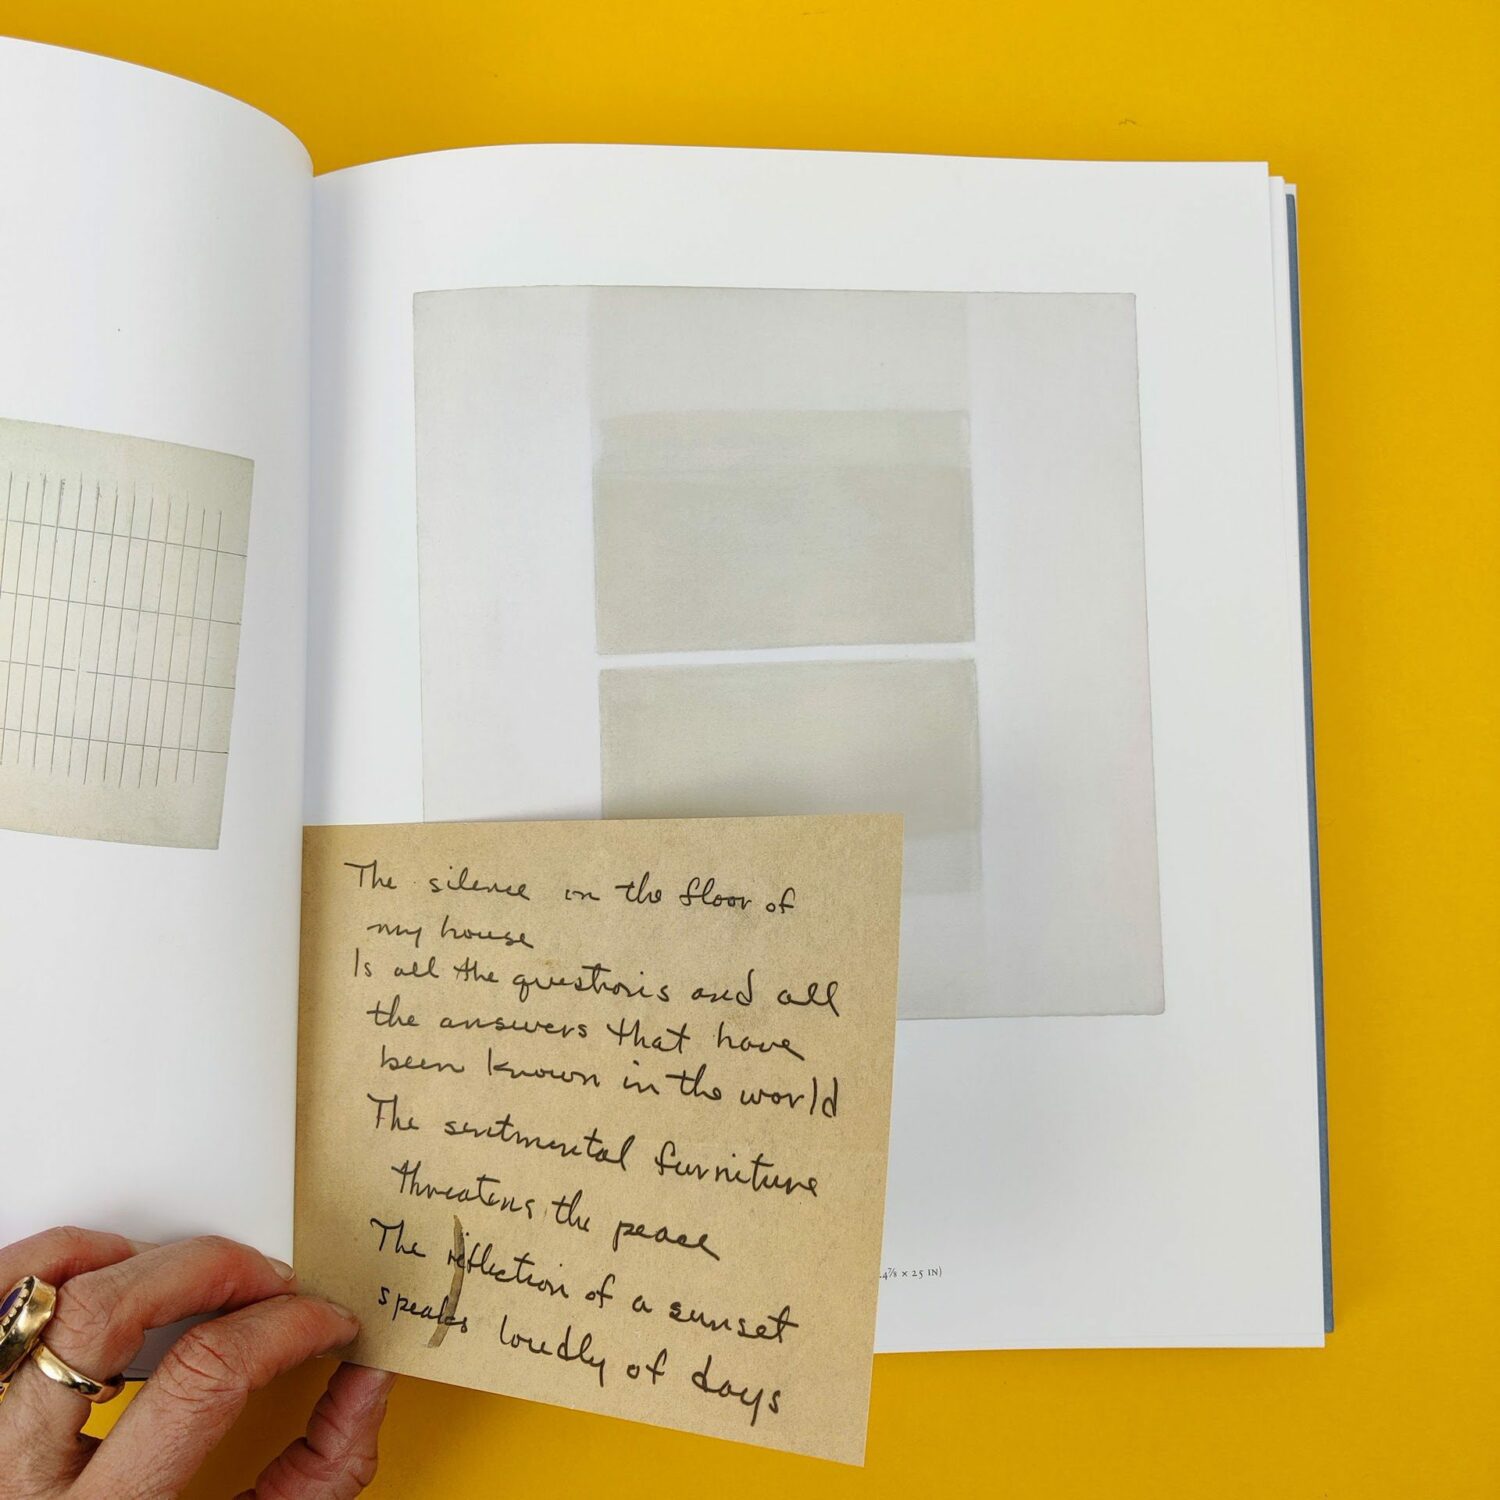 The silence on the floor of
my house
Is all the questions and all
the answers that have
been known in the world
The sentimental furniture
threatens the peace
The reflection of a sunset
speaks loudly of days
4⅞ × 25 IN)